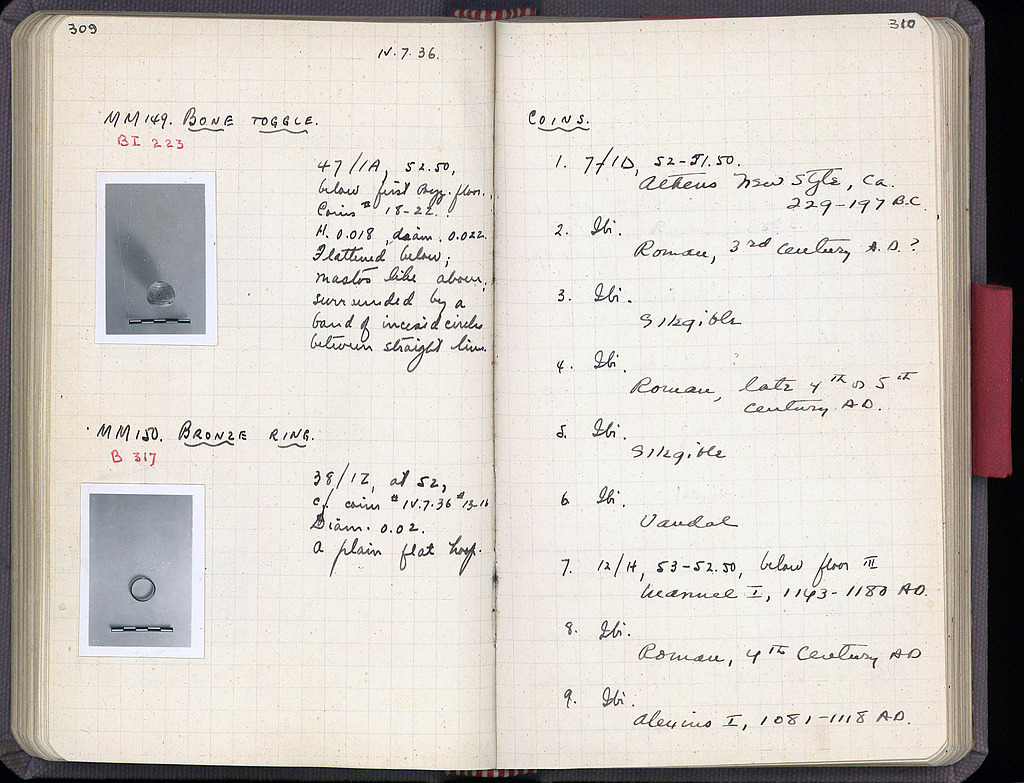 309
IV.7.36.
MM149. BONE TOGGLE.
BI 223
47/1A, 52.50,
below first Byz. floor.
Coins # 18-22.
H. 0.018, diam. 0.022.
Flattened below;
mastos like above,
surrounded by a
band of incised circles
between straight lines.
MM150. BRONZE RING.
B 317
38/IZ, at 52,
cf. coins # IV.7.36 # 13-16
Diam. 0.02.
A plain flat hoop.
310
COINS.
1. 7/1D, 52-51.50.
Athens New Style, Ca.
229-197 B.C.
2. Ibi.
Roman, 3rd Century A.D.?
3. Ibi.
Illegible
4. Ibi.
Roman, late 4th or 5th
century A.D.
5. Ibi.
Illegible
6. Ibi.
Vandal
7. 12/H, 53-52.50, below floor III
Manuel I, 1143-1180 A.D.
8. Ibi.
Roman, 4th Century AD
9. Ibi.
Alexius I, 1081-1118 A.D.